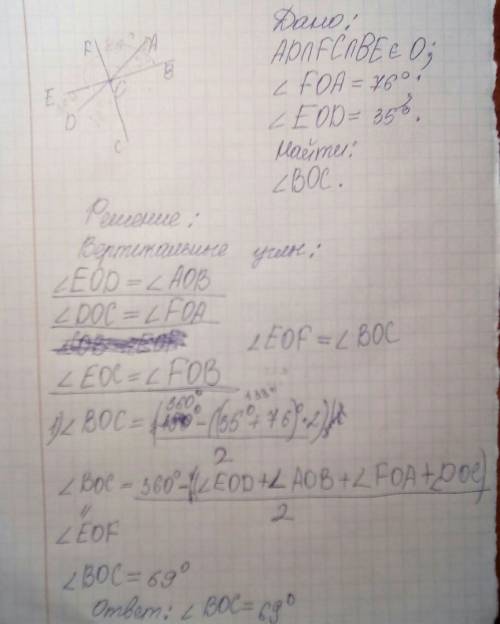 Дано:
AD∩FC∩BE ∈ O;
∠ FOA = 76°;
∠ EOD = 35°.
Найти:
∠BOC.
F
A
B
E
D
O
C
Решение:
Вертикальные углы:
∠EOD = ∠AOB
∠DOC = ∠FOA
∠EOF = ∠BOC
∠EOC = ∠FOB
1) ∠BOC = (360° - ((35° + 76)° · 2)
2
∠BOC = 360° - (∠EOD + ∠AOB + ∠FOA + ∠DOC)
2
"
∠EOF
∠BOC = 69°
Ответ: ∠BOC = 69°